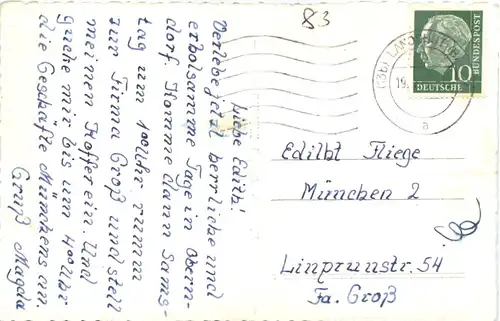 83
Liebe Edith!
Verlebe jetzt herrliche und
erholsamme Tage in Obern-
dorf. Komme dann Sams-
tag um 100Uhr rumm
zur Firma Groß und stell
meinen Koffer ein. Und
gucke mir bis um 400Uhr
die Geschäfte Münchens an.
Gruß Magda
(13b) LANDSHUT
19.
a
DEUTSCHE
BUNDESPOST
10
Edilbt Fliege
München 2
Linprunstr. 54
Fa. Groß